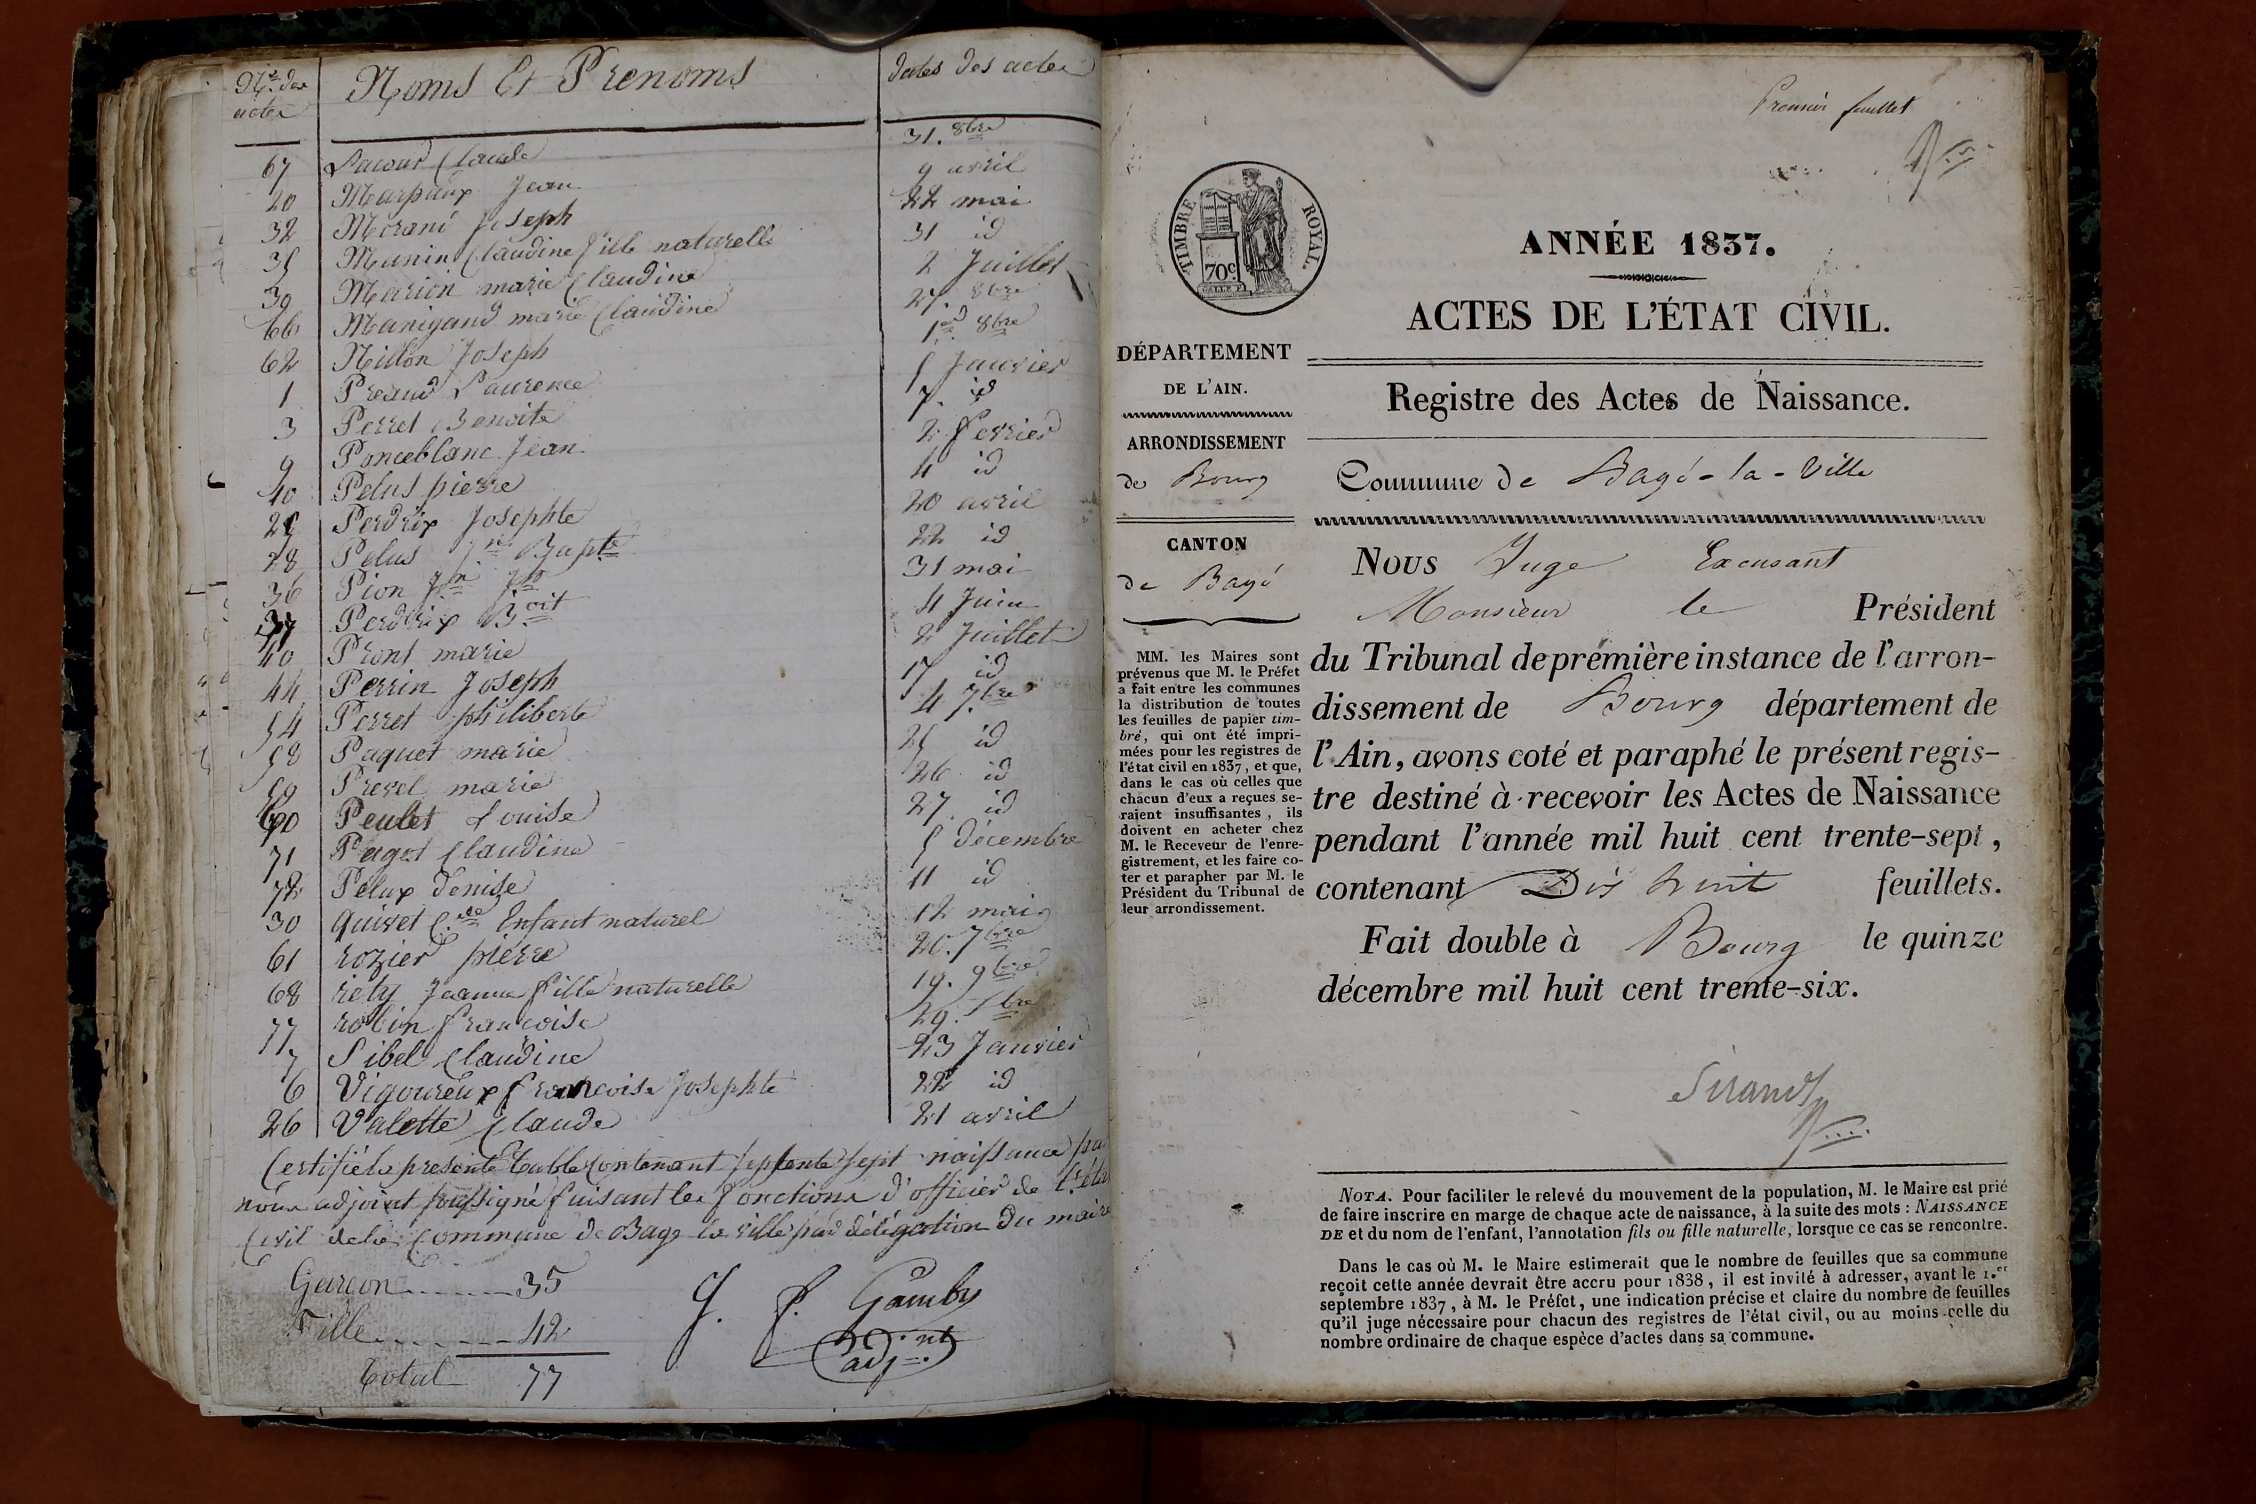 Nos des actes
Noms Et Prenoms
dates des actes
67 Lacour Claude 31. 8bre
20 Marpaux Jean 9 avril
32 Morand Joseph 22 mai
35 Manin Claudine fille naturelle 31 id
39 Marion marie Claudine 2 Juillet
66 Manigand marie Claudine 27. 8bre
62 Nillon Joseph 1er 8bre
1 Preaud Laurence 5 Janvier
3 Perret Benoite 7. id
9 Ponceblanc Jean 2 fevrier
10 Pelus pierre 4 id
25 Perdrix Josephte 20 avril
28 Pelus Jn Bapte 22 id
36 Pion Jn Jh 31 mai
37 Perdrix Boit 4 Juin
40 Pront marie 2 Juillet
44 Perrin Joseph 17 id
54 Perret philiberte 4 7bre
58 Paquet marie 25 id
59 Prevel marie 26 id
60 Peulet Louise 27 id
71 Pagot Claudine 5 décembre
72 Pelux denise 11 id
30 quivet Cde Enfant naturel 12 mai
61 rozier pierre 26. 7bre
68 rety Jeanne fille naturelle 19. 9bre
77 robin francoise 29.
7 Sibel Claudine 23 Janvier
6 Vigoureux francoise Josephte 22 id
26 Valette Claude 21 avril
Certifié la presente table contenant septente sept naissance par
nous adjoint soussigné faisant les fonctions d'officier de l'état
Civil de la Commune de Bage la ville par délégation du maire
Garcon 35
Fille 42
total 77
J. f. Gamby
adjnt
Premier feuillet
TIMBRE ROYAL.
70c.
ANNÉE 1837.
ACTES DE L'ÉTAT CIVIL.
Registre des Actes de Naissance.
Commune de Bagé-la-Ville
DÉPARTEMENT
DE L'AIN.
ARRONDISSEMENT
de Bourg
CANTON
de Bagé
MM. les Maires sont
prévenus que M. le Préfet
a fait entre les communes
la distribution de toutes
les feuilles de papier tim-
bré, qui ont été impri-
mées pour les registres de
l'état civil en 1837, et que,
dans le cas où celles que
chacun d'eux a reçues se-
raient insuffisantes, ils
doivent en acheter chez
M. le Receveur de l'enre-
gistrement, et les faire co-
ter et parapher par M. le
Président du Tribunal de
leur arrondissement.
NOUS Juge Excusant
Monsieur le Président
du Tribunal de première instance de l'arron-
dissement de Bourg département de
l'Ain, avons coté et paraphé le présent regis-
tre destiné à recevoir les Actes de Naissance
pendant l'année mil huit cent trente-sept,
contenant Dix huit feuillets.
Fait double à Bourg le quinze
décembre mil huit cent trente-six.
Sirand
NOTA. Pour faciliter le relevé du mouvement de la population, M. le Maire est prié
de faire inscrire en marge de chaque acte de naissance, à la suite des mots : NAISSANCE
DE et du nom de l'enfant, l'annotation fils ou fille naturelle, lorsque ce cas se rencontre.
Dans le cas où M. le Maire estimerait que le nombre de feuilles que sa commune
reçoit cette année devrait être accru pour 1838, il est invité à adresser, avant le 1.er
septembre 1837, à M. le Préfet, une indication précise et claire du nombre de feuilles
qu'il juge nécessaire pour chacun des registres de l'état civil, ou au moins celle du
nombre ordinaire de chaque espèce d'actes dans sa commune.